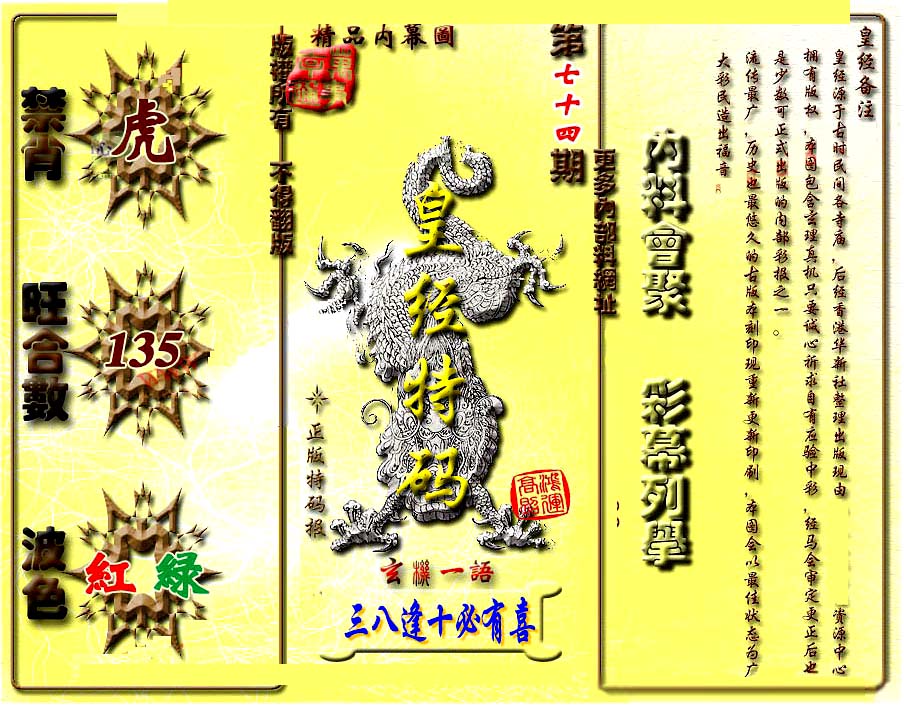 禁肖
虎
旺合數
135
波色
紅 綠
版權所有 不得翻版
精品内幕圖
第七十四期
皇经特码
正版特码报
鴻運高照
玄機一語
三八逢十必有喜
更多内部料網址
内料會聚 彩幕列舉
皇经备注
皇经源于古时民间各寺庙，后经香港华新社整理出版现由 资源中心
拥有版权，本图包含玄理真机只要诚心祈求自有应验中彩，经马会审定更正后也
是少数可正式出版的内部彩报之一。
流传最广，历史也最悠久的古版本刻印现重新更新印刷，本图会以最佳状态为广
大彩民造出福音。